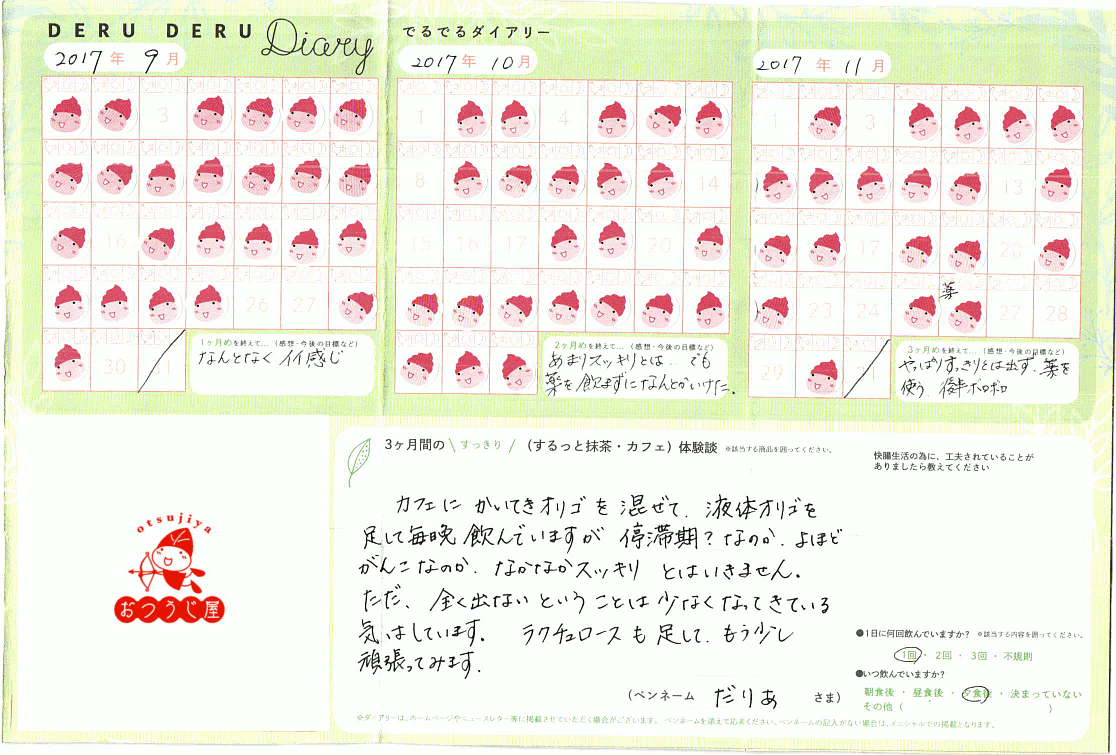 DERU DERU Diary でるでるダイアリー
2017年 9月
3
16
26 27
30 31
1ヶ月めを終えて…（感想・今後の目標など）
なんとなくイイ感じ
2017年 10月
1 4
8 14
15 16 17 20
2ヶ月めを終えて…（感想・今後の目標など）
あまりスッキリとは…でも
薬を飲まずになんとかいけた。
2017年 11月
1 3
13
17 20
薬
23 24 27 28
29 31
3ヶ月めを終えて…（感想・今後の目標など）
やっぱりすっきりとは出ず、薬を
使う。後半ボロボロ
3ヶ月間の\すっきり/（するっと抹茶・カフェ）体験談 ※該当する商品を囲ってください。
快腸生活の為に、工夫されていることが
ありましたら教えてください
カフェに かいてきオリゴを混ぜて、液体オリゴを
足して毎晩飲んでいますが 停滞期？なのか、よほど
がんこなのか、なかなかスッキリ とはいきません。
ただ、全く出ないということは少なくなってきている
気はしています。 ラクチュロースも足して、もう少し
頑張ってみます。
（ペンネーム だりあ さま）
otsujiya
おつうじ屋
●1日に何回飲んでいますか？ ※該当する内容を囲ってください。
1回・2回・3回・不規則
●いつ飲んでいますか？
朝食後・昼食後・夕食後・決まっていない
その他（ ）
※ダイアリーは、ホームページやニュースレター等に掲載させていただく場合がございます。ペンネームを添えて応募ください。ペンネームの記入がない場合は、イニシャルでの掲載となります。